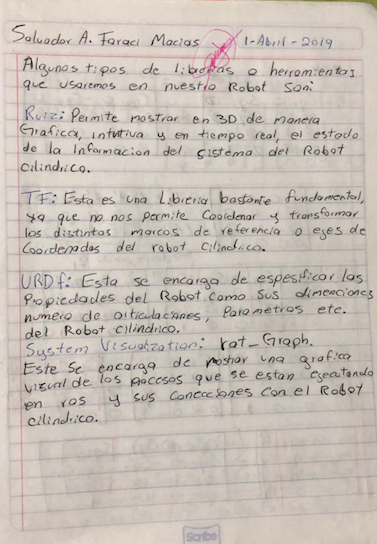 Salvador A. Faraci Macias 1-Abril-2019
Algunos tipos de librerias o herramientas
que usaremos en nuestro Robot Son:
Ruiz: Permite mostrar en 3D de manera
Grafica, intutiva y en tiempo real, el estado
de la Informacion del sistema del Robot
Cilindrico.
TF: Esta es una Libreria bastante fundamental,
ya que no nos permite Coordenar y transformar
los distintos marcos de referencia o ejes de
Coordenadas del robot Cilindrico.
URDf: Esta se encarga de espesificar las
Propiedades del Robot como Sus dimenciones
numero de articulaciones, Parametros etc.
del Robot cilindrico.
System Visualization: rat_Graph.
Este Se encarga de mostrar una grafica
visual de los procesos que se estan ejecutando
en ros y sus Conecciones con el Robot
cilindrico.
Scribe